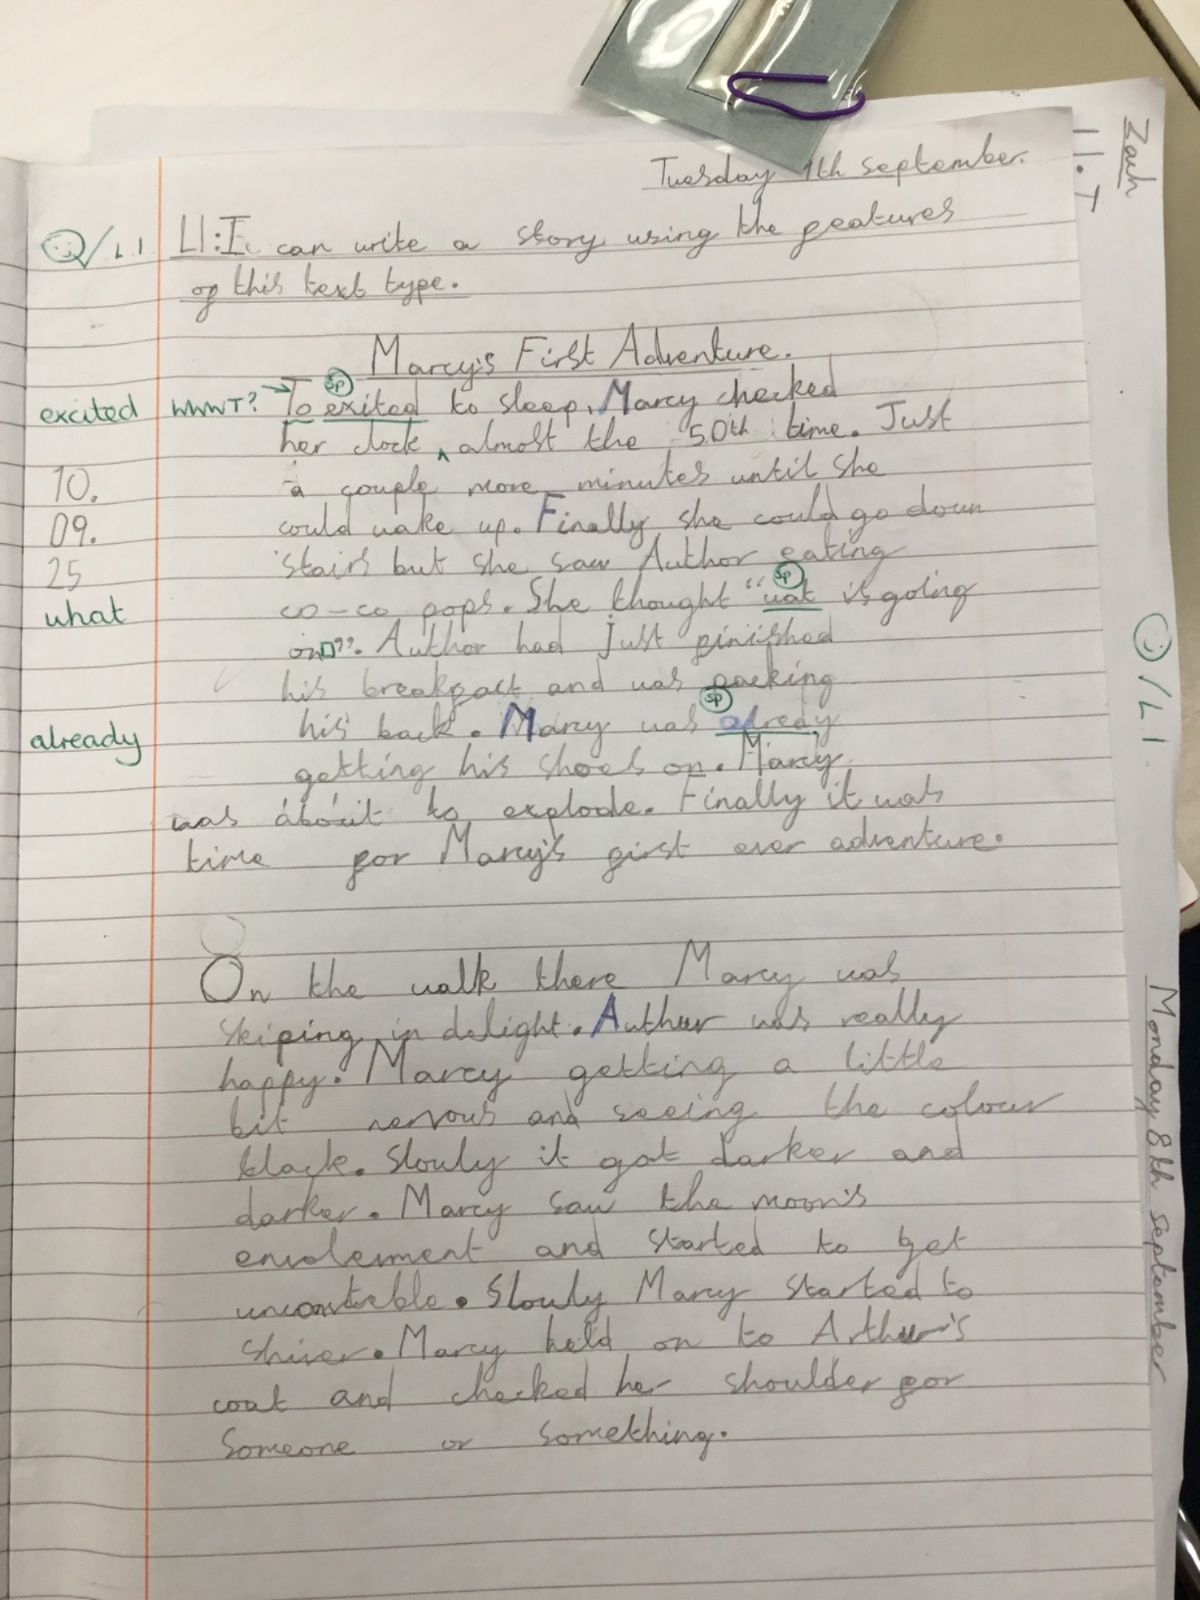 Tuesday 9th September.
LI: I can write a story using the features
of this text type.
Marcy's First Adventure.
excited WWWT? To sp exited to sleep, Marcy checked
her clock ^ almost the 50th time. Just
10. a couple more minutes until she
09. could wake up. Finally she could go down
25 stairs but she saw Author eating
what co-co pops. She thought "sp wat is going
on"?. Author had just finished
his breakfast and was packing
already his back. Marcy was sp alredy
getting his shoes on. Marcy
was about to explode. Finally it was
time for Marcy's first ever adventure.
On the walk there Marcy was
skiping in delight. Authur was really
happy. Marcy getting a little
bit nervous and seeing the colour
black. Slowly it got darker and
darker. Marcy saw the moon's
and started to get
Slowly Marcy started to
shiver. Marcy held on to Arthur's
coat and checked her shoulder for
someone or something.
Zach
11.
/L1
Monday 8th September